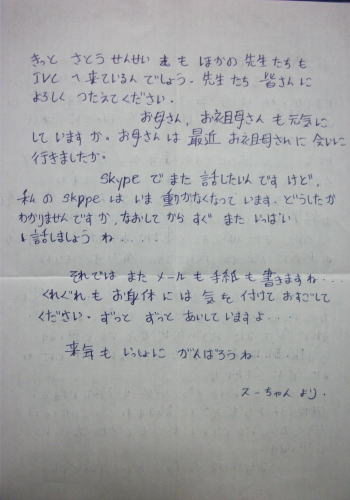 きっと さとうせんせいも ほかの先生たちも
JVC へ来ているんでしょう。先生たち 皆さんに
よろしく つたえてください。
お母さん、お祖母さん も元気に
していますか。お母さんは 最近 お祖母さんに 会いに
行きましたか。
skype で また 話したいんですけど、
私の skppe は いま 動かなくなって います。どうしたか
わかりませんですか、なおしてから すぐ また いっぱい
い話しましょうね....
それでは また メールも 手紙も 書きますね...
くれぐれも お身体には 気を付けて おすごして
ください。ずっと ずっと あいしていますよ...
来気も いっしょに がんばろうね.....
スーちゃん より.